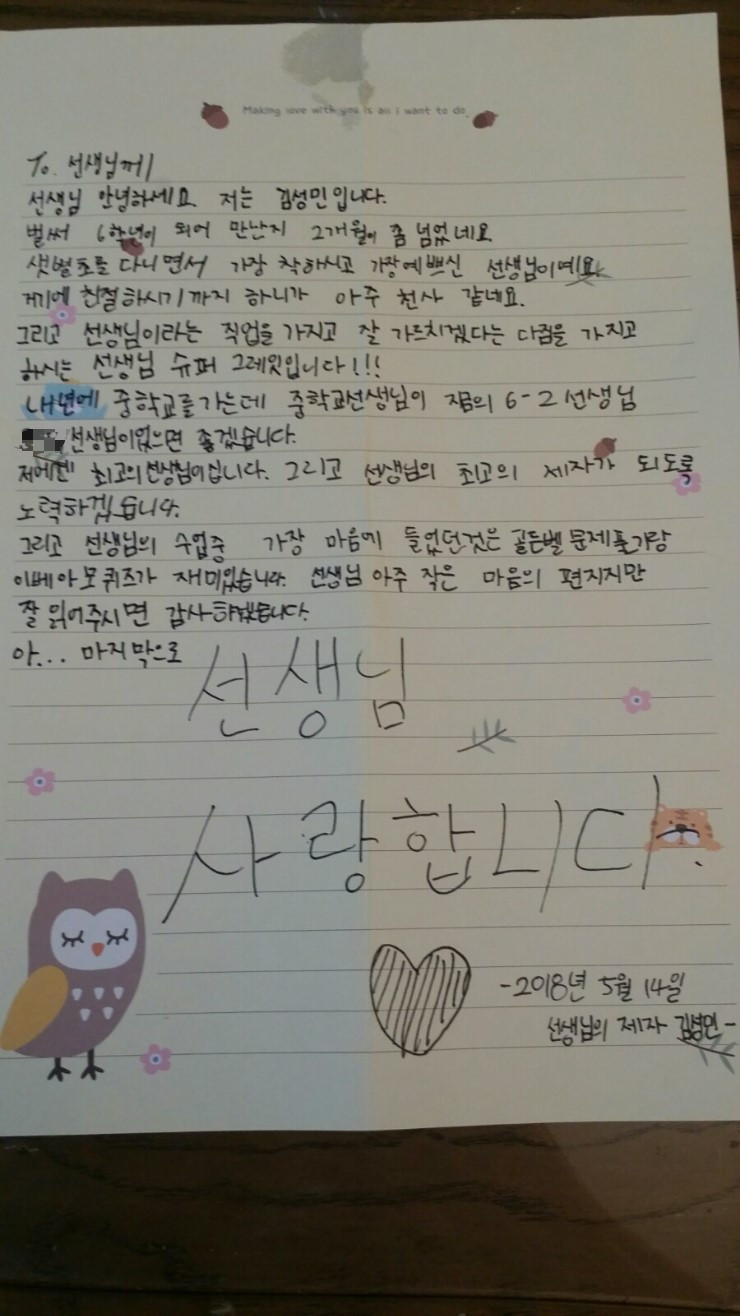 Making love with you is all i want to do.
To. 선생님께
선생님 안녕하세요. 저는 김성민입니다.
벌써 6학년이 되어 만난지 2개월이 좀 넘었네요
샛별초를 다니면서 가장 착하시고 가장예쁘신 선생님이예요
거기에 친절하시기까지 하니가 아주 천사 같네요.
그리고 선생님이라는 직업을 가지고 잘 가르치겠다는 다짐을 가지고
하시는 선생님 슈퍼 그레잇입니다!!!
내년에 중학교를가는데 중학교선생님이 지금의 6-2 선생님
선생님이었으면 좋겠습니다.
저에겐 최고의선생님이십니다. 그리고 선생님의 최고의 제자가 되도록
노력하겠습니다.
그리고 선생님의 수업중 가장 마음에 들었던것은 골든벨 문제풀기랑
이베아모 퀴즈가 재미있습니다. 선생님 아주 작은 마음의 편지지만
잘 읽어주시면 감사하겠습니다.
아... 마지막으로
선생님
사랑합니다.
-2018년 5월 14일
선생님의 제자 김성민-